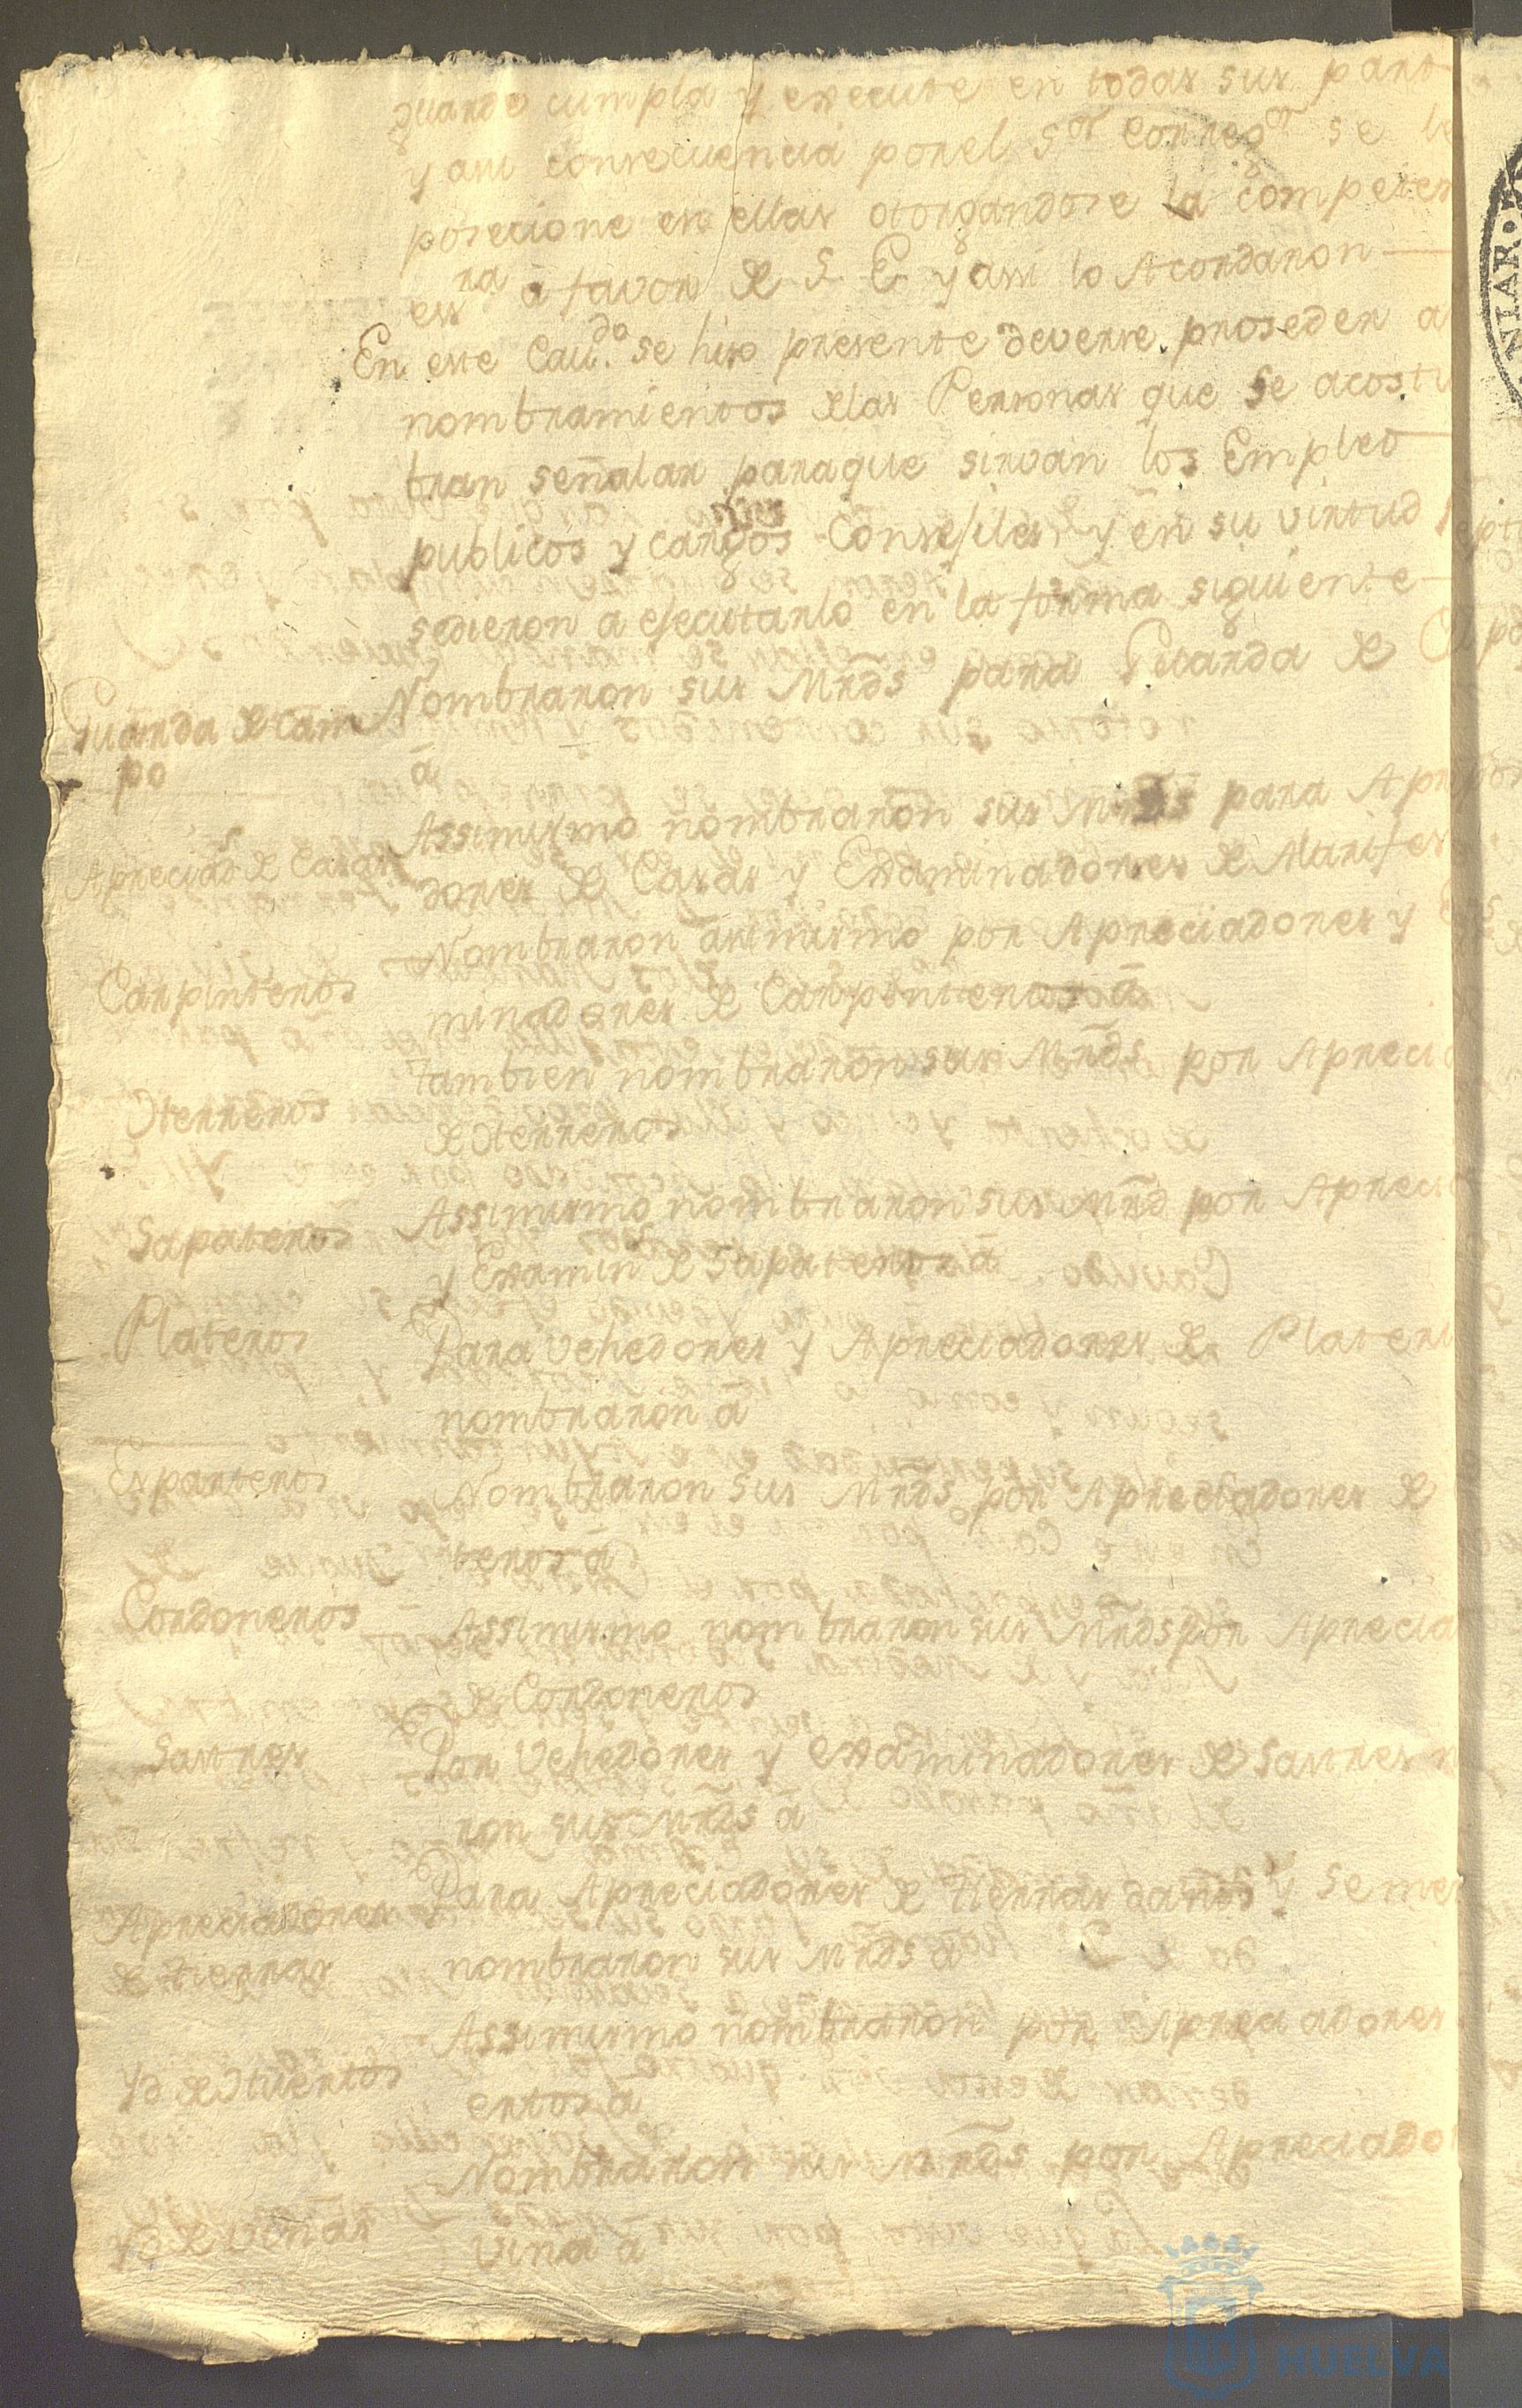 guarde cumpla y execute en todas sus part
y asu consecuencia por el Sor Corregor se le
posecione en ellas otorgandose la competen
essra a favor de S. E. y assi lo Acordaron
En este Cavdo. se hiso presente deverse proseder a
nombramientos delas Personas que se acostu
bran señalar paraque sirvan los Empleo
publicos y cargos Consejiles, y en su virtud
sedieron a ejecutarlo en la forma siguiente
Guarda de cam
po
Nombraron sus Mrds para Guarda de
a
Apreciads de Casas
Assimismo nombraron sus Mrds para Apre
dores de Casas y Examinadores de Alarifes
Carpinteros
Nombraron asimismo por Apreciadores y
minadores de Carpinteros a
Herreros
Tambien nombraron sus Mrds por Apreci
de Herreros
Sapateros
Assimismo nombraron sus Mrd por Apreci
y Examin de Sapateros a
Plateros
Para Vehedores y Apreciadores de Plater
nombraron a
Esparteros
Nombraron sus Mrds por Apreciadores de
teros a
Cordoneros
Assimismo nombraron sus Mrds por Aprecia
de Cordoneros
Sastres
Por Vehedores y examinadores de Sastres n
ron sus Mrds a
Apreciadores
de tierras
Para Apreciadores de tierras daños y seme
nombraron sus Mrds a
Yd de Huertos
Assimismo nombraron por Apreciadores
ertos a
Yd de Viñas
Nombraron sus Mrds por Apreciado
viña a
NIAR
HUELVA